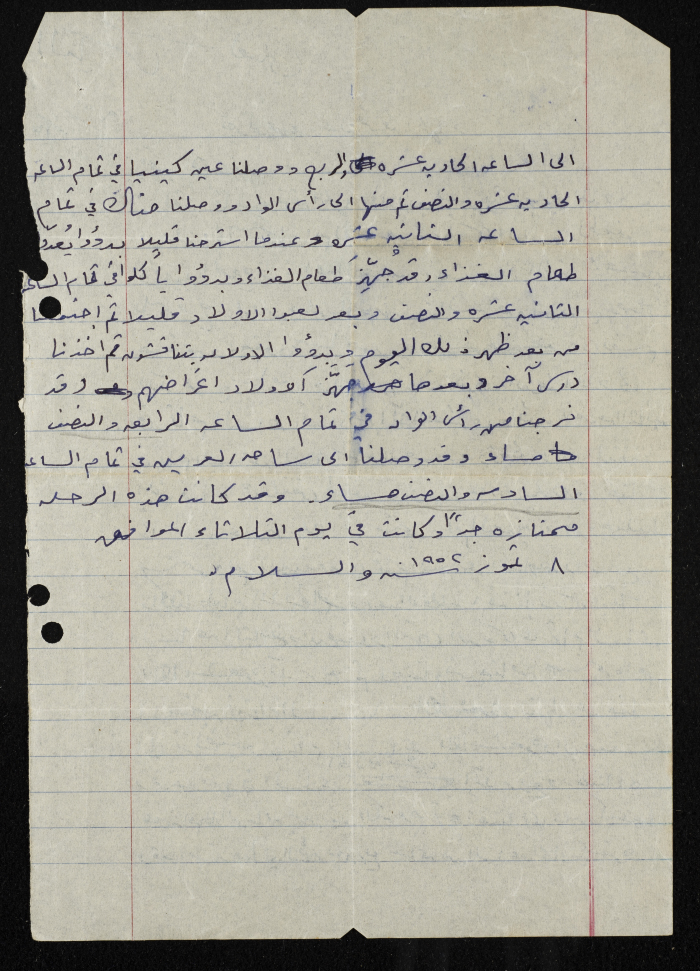 الى الساعه الحاديه عشره والربع ووصلنا عين كينيا في تمام الساعه
الحاديه عشره والنصف ثم منها الى رأس الواد ووصلنا هناك في تمام
الساعه الثانيه عشره وعندما استرحنا قليلا بدوؤا يُعدّو
طعام الغذاء وقد جُهِّزَ طعام الغذاء وبدوؤا يأكلوا في تمام الساعه
الثانيه عشره والنصف وبعد لعبوا الاولاد قليلا ثم اجتمعنا
من بعد ظهر ذلك اليوم وبدوؤا الاولاد يتناقشون ثم اخذنا
درس آخر وبعدها جهَّز الاولاد اغراضهم وقد
خرجنا من رأس الواد في تمام الساعه الرابعه والنصف
مساء وقد وصلنا الى ساحه العرين في تمام الساعه
السادسه والنصف مساء. وقد كانت هذه الرحله
ممتازه جدًا وكانت في يوم الثلاثاء الموافق
٨ تموز سنه ١٩٥٢ والسلام